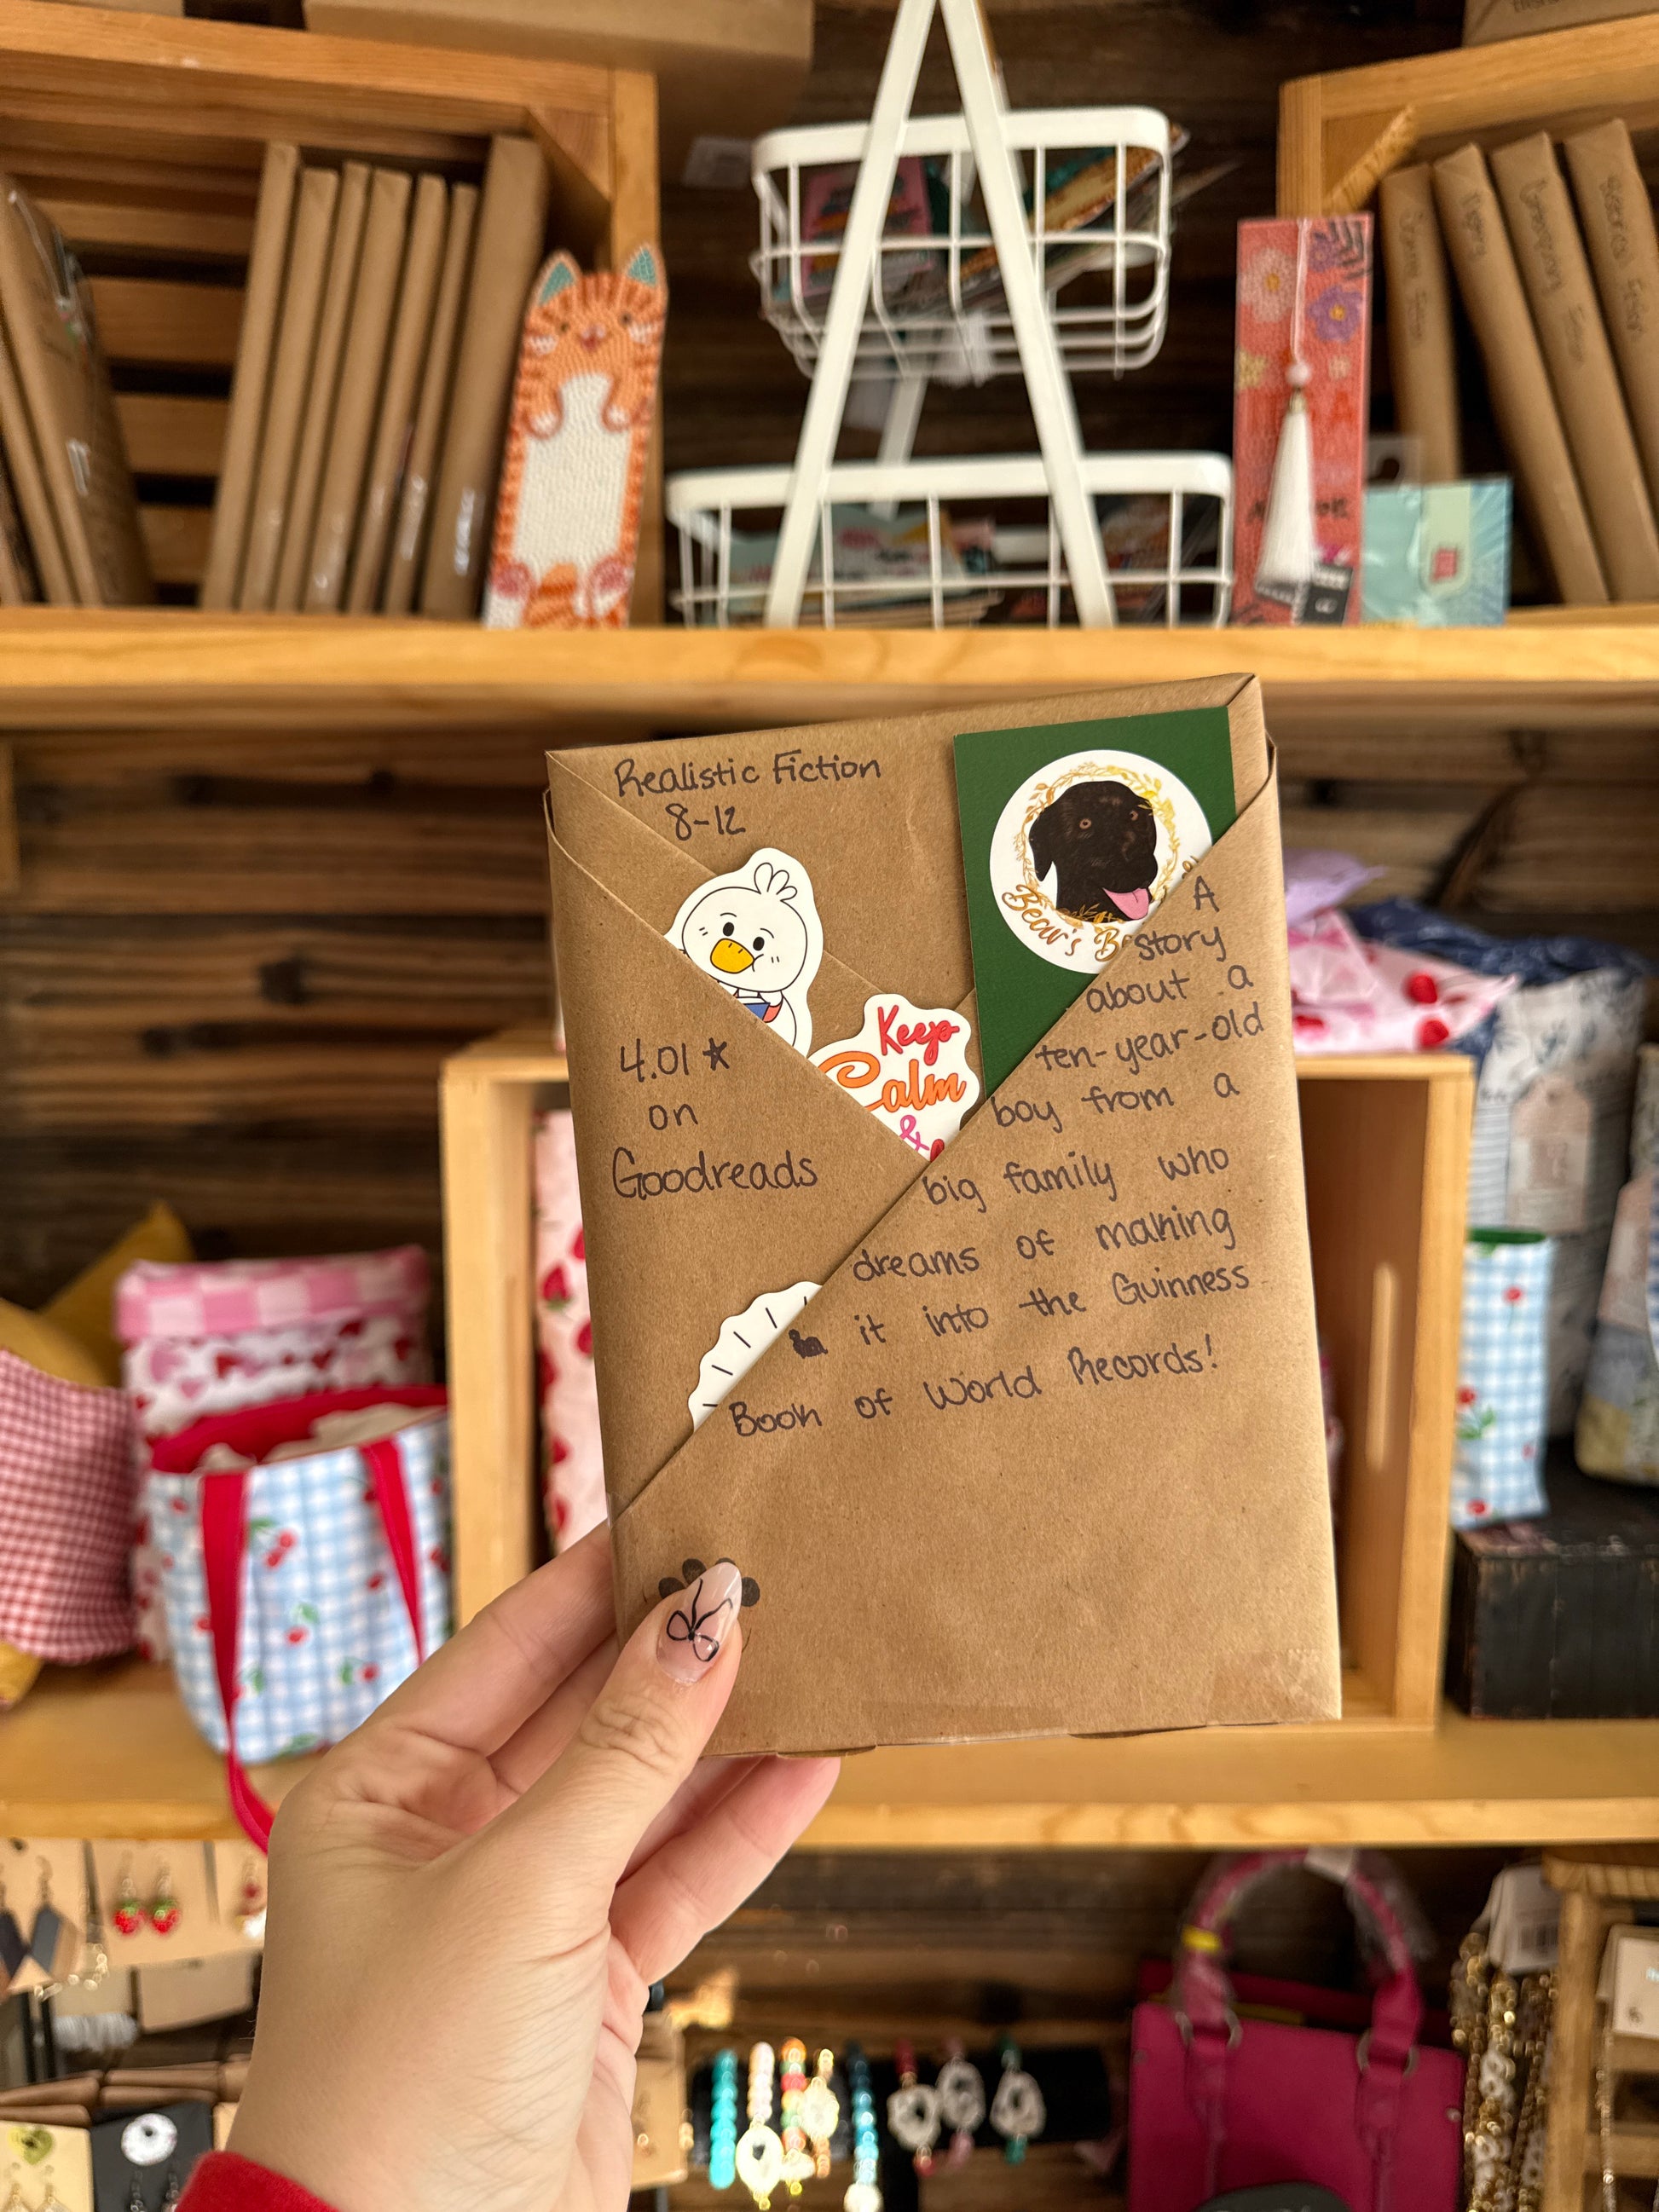 Realistic Fiction
8-12
Bear's B
Keep
Calm
&
4.01 ★
on
Goodreads
A
story
about a
ten-year-old
boy from a
big family who
dreams of making
it into the Guinness
Book of World Records!